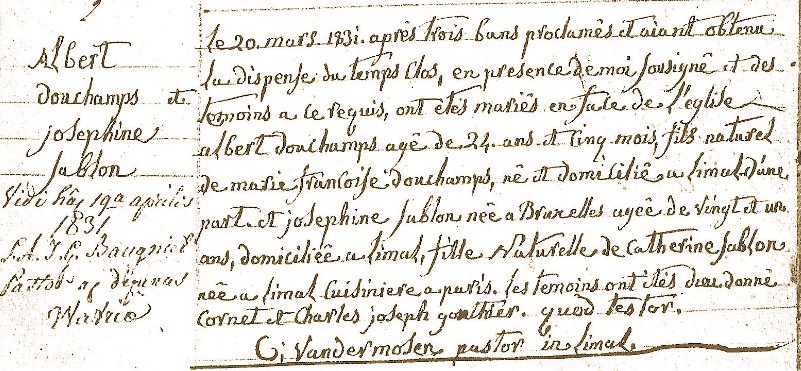 Albert
douchamps et
josephine
Sablon
Vidi hâc 19a aprilis
1831
Pastor ac
Wavriæ
le 20. mars. 1831. après trois bans proclamês et aiant obtenu
la dispense du temps Clos, en presence de moi soussignê et des
temoins a ce requis, ont etês mariês en face de l'eglise
albert douchamps agê de 24. ans et cinq mois, fils naturel
de marie francoise douchamps, nê et domiciliê a limal d'une
part. et josephine Sablon nêê a Bruxelles agêe de vingt et un
ans, domiciliêe a limal, fille Naturelle de Catherine Sablon
nêe a limal Cuisiniere a paris. les temoins ont êtês dieudonnê
Cornet et Charles joseph gouthier. quod testor.
C; Vandermosen pastor in limal.